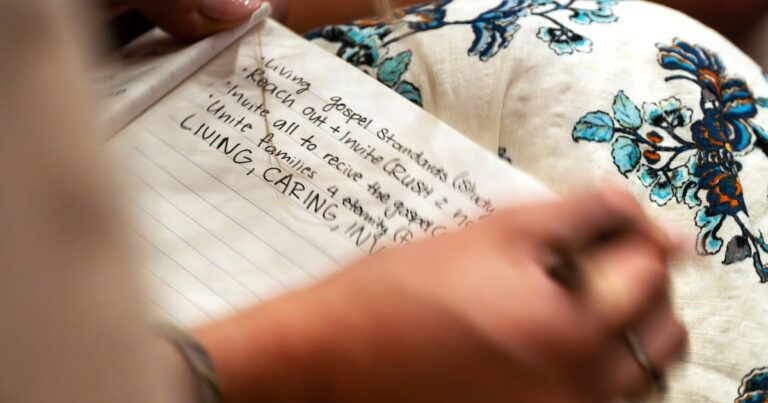 · Living gospel standards (study
· Reach out + Invite (RUSH 2 ne
· Invite all to recive the gospel (
· Unite families 4 eternity (
LIVING, CARING, INV